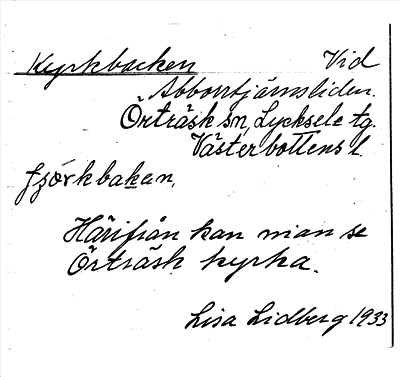 Kyrkbacken Vid
Abborrtjärnsliden.
Örträsk sn, Lycksele tg.
Västerbottens l.
fjörkbakan,
Härifrån kan man se
Örträsk kyrka.
Lisa Lidberg 1933